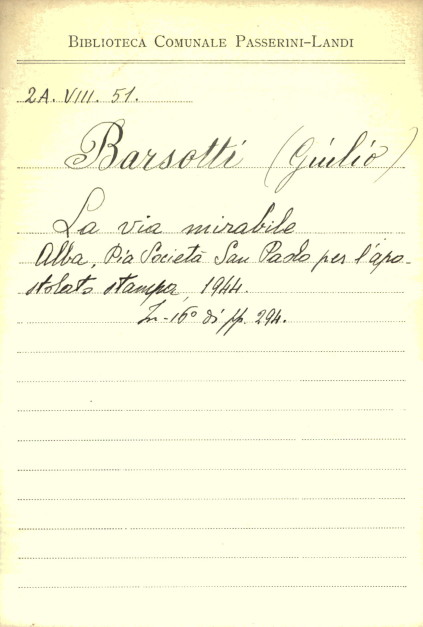 BIBLIOTECA COMUNALE PASSERINI-LANDI
2A. VIII. 51.
Barsotti (Giulio)
La via mirabile
Alba, Pia Società San Paolo per l'apo-
stolato stampa, 1944.
In-16° di pp. 294.